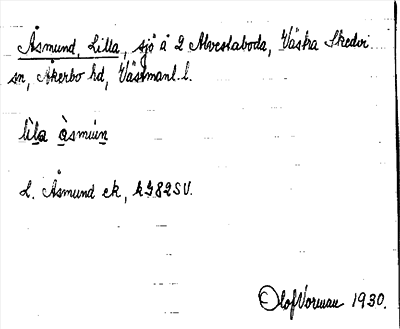 Åsmund, Lilla, sjö å 2 Alvestaboda, Västra Skedvi
sn, Åkerbo hd, Västmanl. l.
lìla åsmun
L. Åsmund ek, k782SV.
Olof Norman 1930.